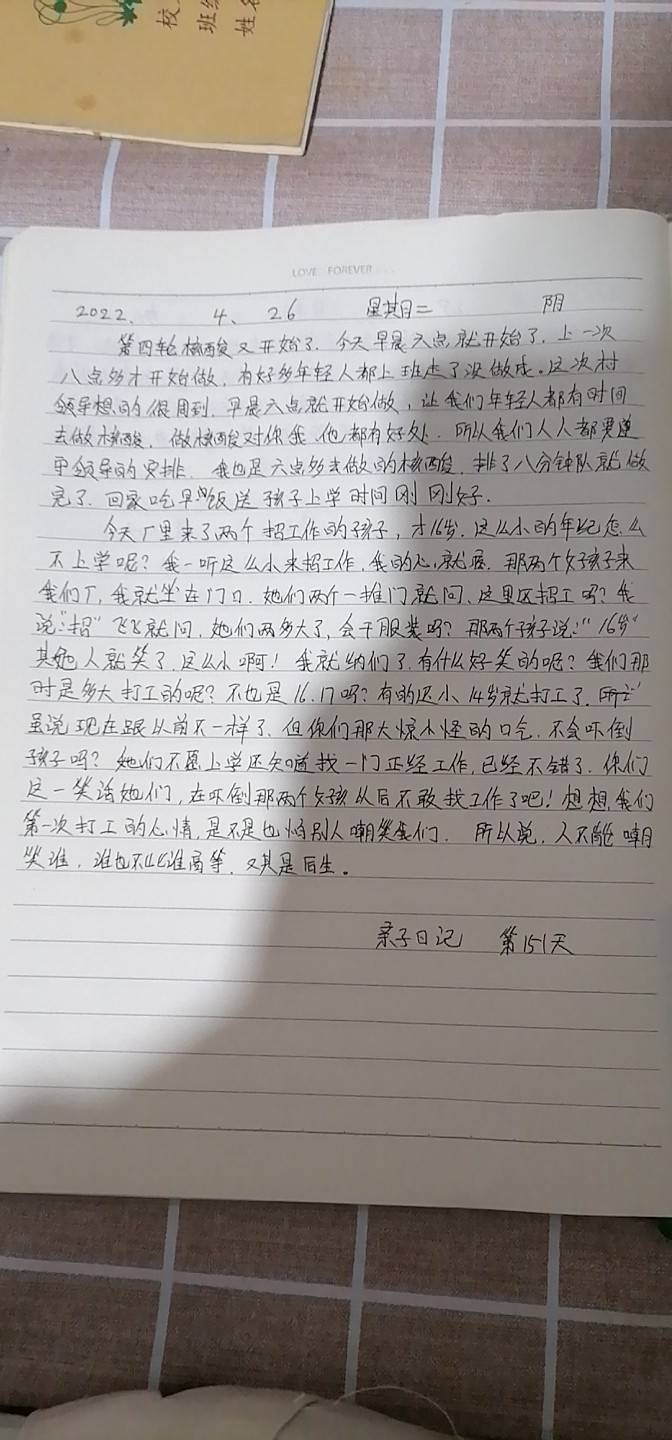 校
班级
姓名
LOVE FOREVER
2022. 4. 26 星期二 阴
第四轮核酸又开始了. 今天早晨六点就开始了. 上一次
八点多才开始做, 有好多年轻人都上班走了没做成。这次村
领导想的很周到. 早晨六点就开始做, 让我们年轻人都有时间
去做核酸. 做核酸对你我他都有好处. 所以我们人人都要遵
守领导的安排. 我也是六点多去做的核酸. 排了八分钟队就做
完了. 回家吃早饭送孩子上学时间刚刚好.
今天厂里来了两个招工作的孩子, 才16岁. 这么小的年纪怎么
不上学呢? 我一听这么小来招工作, 我的心就疼. 那两个女孩子来
我们厂, 我就坐在门口. 她们两个一推门就问. 这里还招工吗? 我
说:"招" 飞飞就问. 她们两多大了, 会干服装吗? 那两个孩子说:"16岁"
其她人就笑了. 这么小啊! 我就纳们了. 有什么好笑的呢? 我们那
时是多大打工的呢? 不也是16.17吗? 有的还小14岁就打工了.
虽说现在跟以前不一样了. 但你们那大惊小怪的口气. 不会吓倒
孩子吗? 她们不愿上学还知道找一门正经工作, 已经不错了. 你们
这一笑话她们, 在吓倒那两个女孩从后不敢找工作了吧! 想想, 我们
第一次打工的心情, 是不是也怕别人嘲笑我们. 所以说, 人不能嘲
笑谁, 谁也不比谁高等. 又其是后生。
亲子日记 第151天